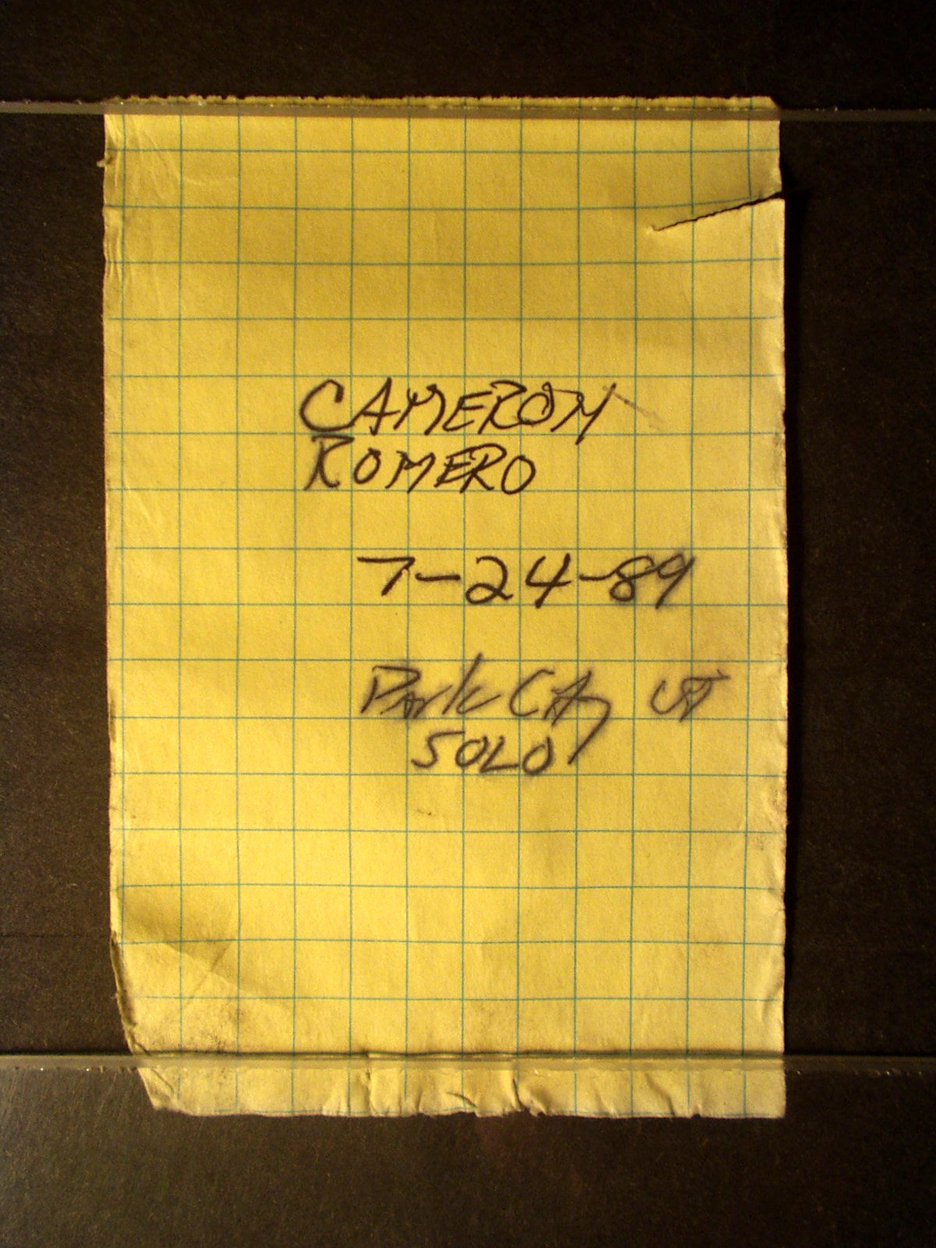 CAMERON
ROMERO
7-24-89
Park City UT
SOLO